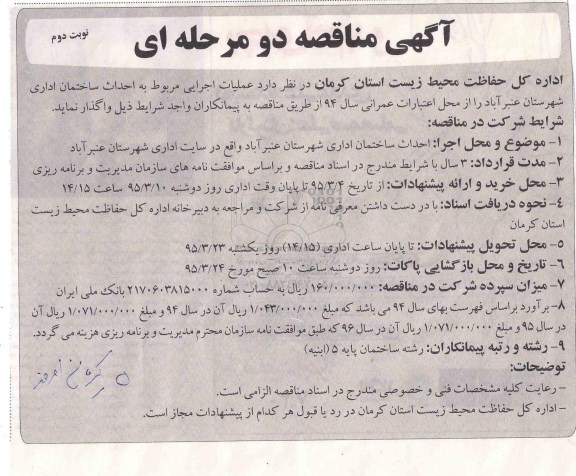 آگهی مناقصه دو مرحله ای
نوبت دوم
اداره کل حفاظت محیط زیست استان کرمان در نظر دارد عملیات اجرایی مربوط به احداث ساختمان اداری
شهرستان عنبرآباد را از محل اعتبارات عمرانی سال ۹۴ از طریق مناقصه به پیمانکاران واجد شرایط ذیل واگذار نماید.
شرایط شرکت در مناقصه:
۱- موضوع و محل اجرا: احداث ساختمان اداری شهرستان عنبرآباد واقع در سایت اداری شهرستان عنبرآباد
۲- مدت قرارداد: ۳ سال با شرایط مندرج در اسناد مناقصه و براساس موافقت نامه های سازمان مدیریت و برنامه ریزی
۳- محل خرید و ارائه پیشنهادات: از تاریخ ۹۵/۳/۴ تا پایان وقت اداری روز دوشنبه ۹۵/۳/۱۰ ساعت ۱۴/۱۵
۴- نحوه دریافت اسناد: با در دست داشتن معرفی نامه از شرکت و مراجعه به دبیرخانه اداره کل حفاظت محیط زیست
استان کرمان
۵- محل تحویل پیشنهادات: تا پایان ساعت اداری (۱۴/۱۵) روز یکشنبه ۹۵/۳/۲۳
۶- تاریخ و محل بازگشایی پاکات: روز دوشنبه ساعت ۱۰ صبح مورخ ۹۵/۳/۲۴
۷- میزان سپرده شرکت در مناقصه: ۱۶۰/۰۰۰/۰۰۰ ریال به حساب شماره ۲۱۷۰۶۰۳۸۱۵۰۰۰ بانک ملی ایران
۸- برآورد براساس فهرست بهای سال ۹۴ می باشد که مبلغ ۱/۰۴۳/۰۰۰/۰۰۰ ریال آن در سال ۹۴ و مبلغ ۱/۰۷۱/۰۰۰/۰۰۰ ریال آن
در سال ۹۵ و مبلغ ۱/۰۷۱/۰۰۰/۰۰۰ ریال آن در سال ۹۶ که طبق موافقت نامه سازمان محترم مدیریت و برنامه ریزی هزینه می گردد.
۹- رشته و رتبه پیمانکاران: رشته ساختمان پایه ۵ (ابنیه)
توضیحات:
- رعایت کلیه مشخصات فنی و خصوصی مندرج در اسناد مناقصه الزامی است.
- اداره کل حفاظت محیط زیست استان کرمان در رد یا قبول هر کدام از پیشنهادات مجاز است.
کرمان امروز